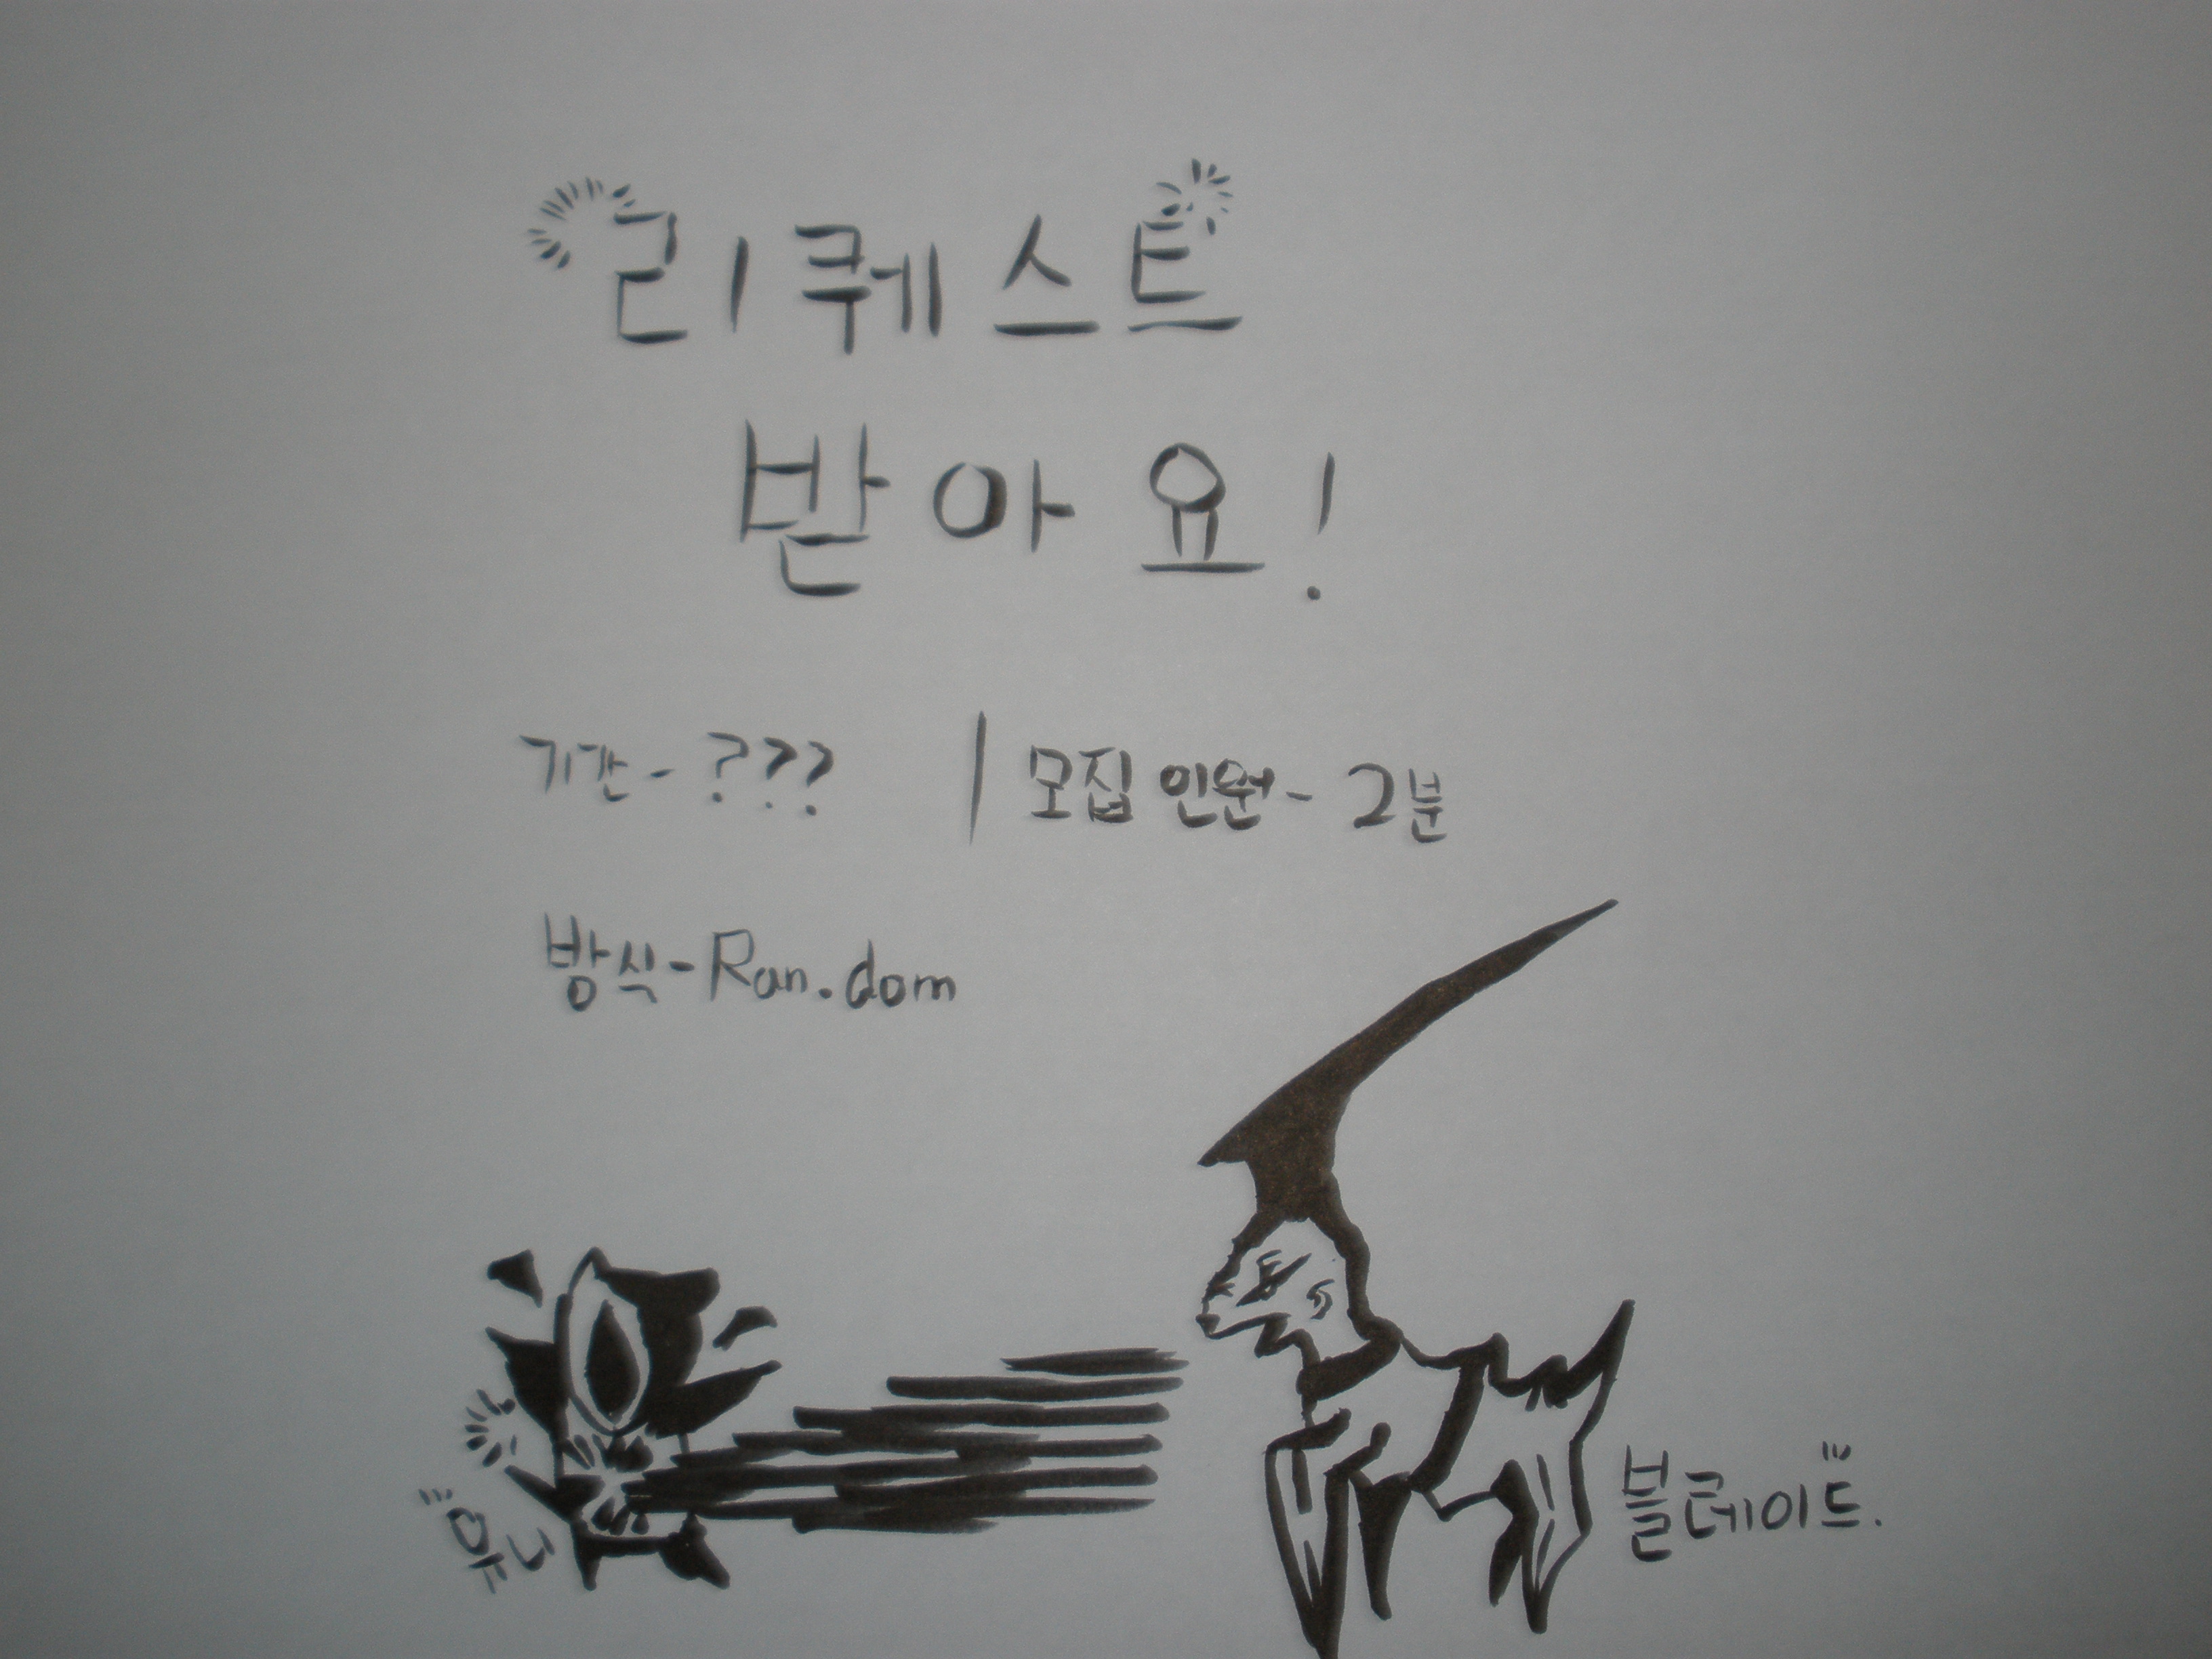 리퀘스트
받아요!
기간-??? | 모집 인원- 2분
방식-Ran.dom
유니
블레이드.